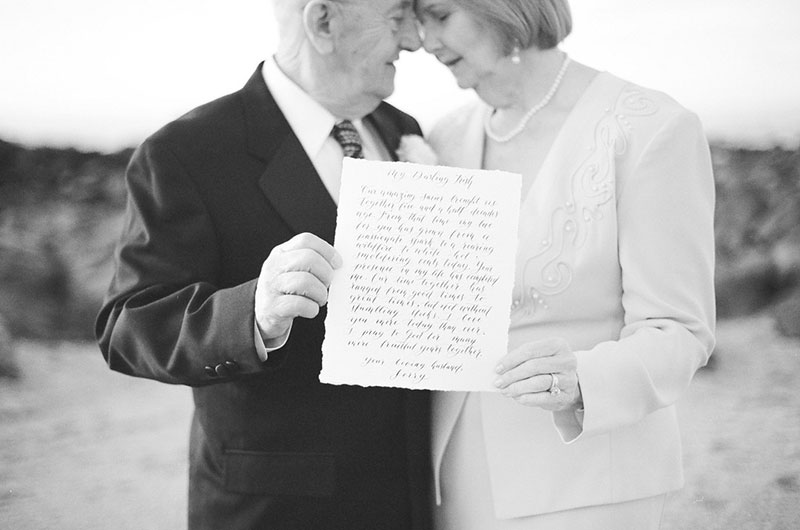 My Darling
Our amazing brought us
together five and a half decades
ago. From that time my love
for you has grown from a
passionate spark to a roaring
wildfire to white hot
smoldering today. Your
presence in my life has completed
me. Our time together has
ranged from good times to
great times, but not without
stumbling blocks. I love
you more today than ever.
I pray to God for many
more fruitful years together.
Your loving husband,